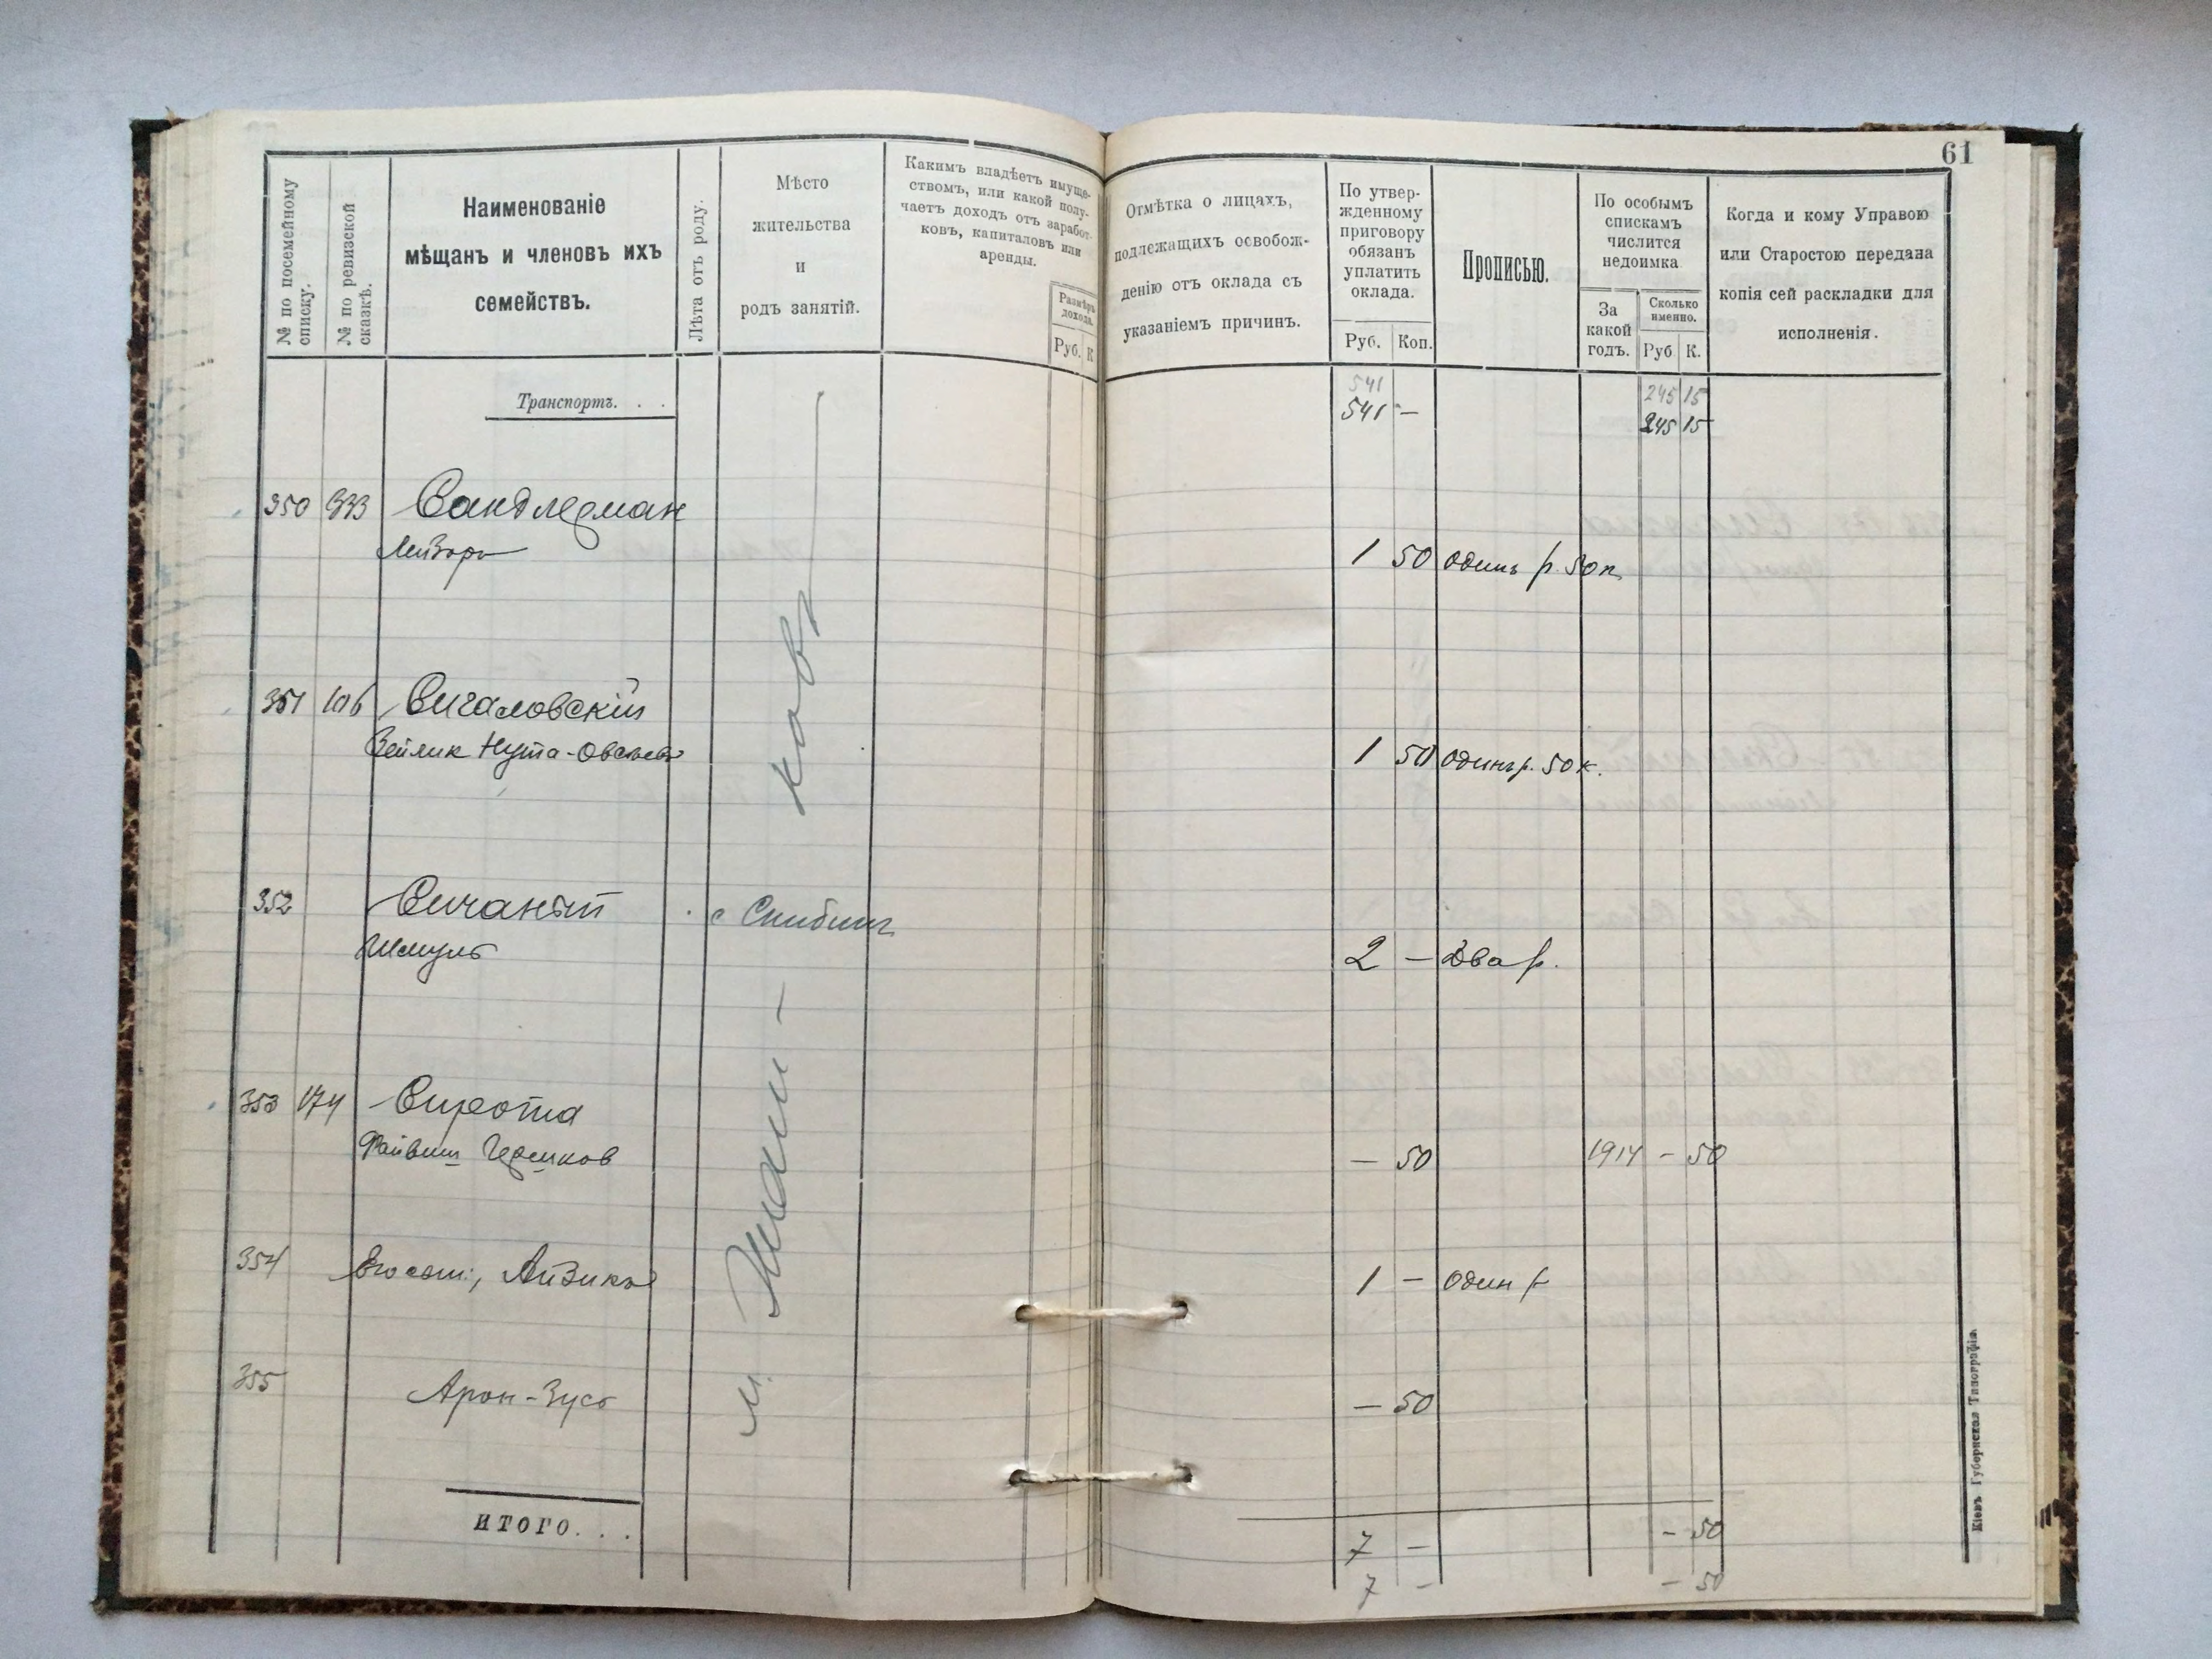 61
№ по посемейному списку.
№ по ревизской сказкѣ.
Наименованіе
мѣщанъ и членовъ ихъ
семействъ.
Лѣта отъ роду.
Мѣсто
жительства
и
родъ занятій.
Какимъ владѣетъ имуще-
ствомъ, или какой полу-
чаетъ доходъ отъ заработ-
ковъ, капиталовъ или
аренды.
Размѣръ
дохода.
Руб. К
Отмѣтка о лицахъ,
подлежащихъ освобож-
денію отъ оклада съ
указаніемъ причинъ.
По утвер-
жденному
приговору
обязанъ
уплатить
оклада.
Руб. Коп.
Прописью.
По особымъ
спискамъ
числится
недоимка
За
какой
годъ.
Сколько
именно.
Руб К.
Когда и кому Управою
или Старостою передана
копія сей раскладки для
исполненія.
Транспортъ. . .
541 245 15
541 — 245 15
350 333 Сандлерман
Лейзоръ 1 50 одинъ р. 50 к
351 106 Сигаловскій
Зейлик Нута-Овсеев 1 50 одинъ р. 50 к.
352 Сичаный с
Шмуль 2 — Два р.
353 174 Сирота
Файвиш Гершков — 50 1914 - 50
354 Его сын:, Айзик 1 — один р
355 Арон-Зусь — 50
ИТОГО. . .
7 — - 50
7 - - 50
Кіевъ Губернская Типографія.